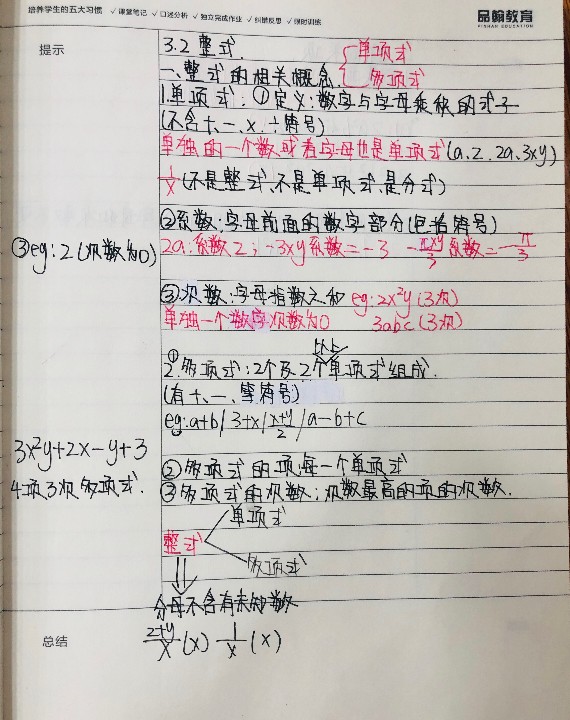 培养学生的五大习惯 ✓课堂笔记 ✓口述分析 ✓独立完成作业 ✓纠错反思 ✓限时训练
品翰教育
PINHAN EDUCATION
提示
3.2 整式.
单项式
多项式
一、整式的相关概念.
1.单项式:①定义:数字与字母乘积的式子
(不含+、-、×、÷符号)
单独的一个数或者字母也是单项式(a、2、2a、3xy)
1/x (不是整式,不是单项式,是分式)
②系数:字母前面的数字部分(包括符号)
2a:系数2; -3xy系数=-3 -πxy/3系数=-π/3
③eg:2(次数为0)
③次数:字母指数之和 eg:2x²y(3次)
单独一个数字次数为0 3abc(3次)
以上
①
2.多项式:2个及2个单项式组成.
(有+、-、等符号)
eg:a+b/3+x/(x+y)/2/a-b+c
3x²y+2x-y+3
4项3次多项式.
②多项式的项:每一个单项式
③多项式的次数:次数最高的项的次数.
单项式
整式
多项式
分母不含有未知数
(2+y)/x (×) 1/x (×)
总结